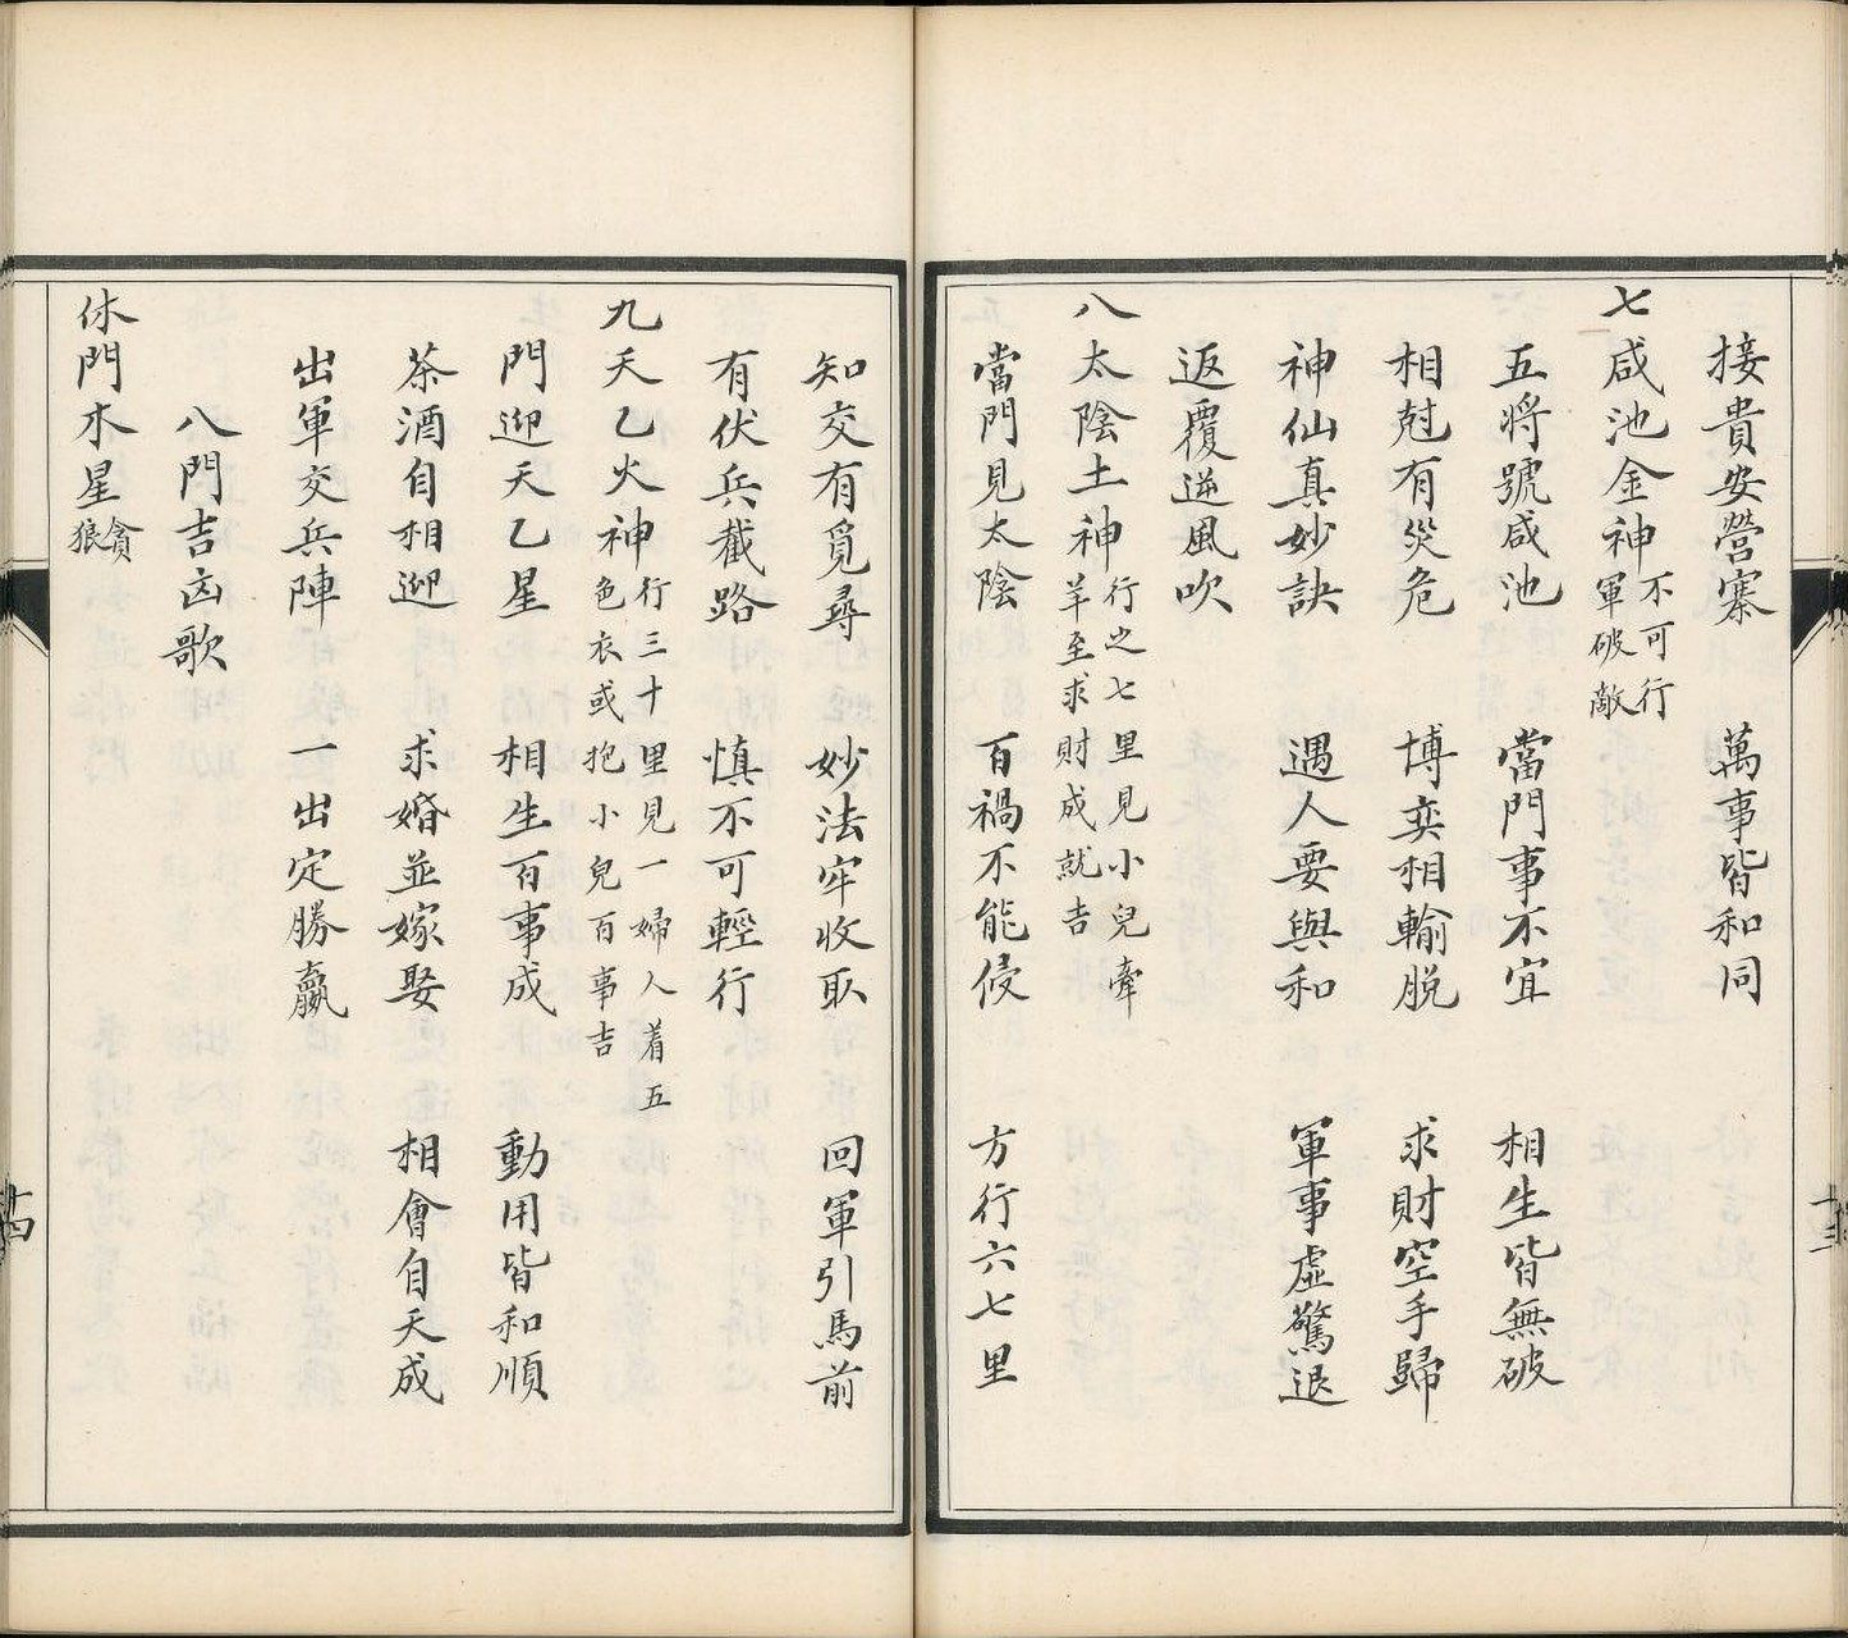 接貴安營寨　萬事皆和同
七咸池金神 不可行軍破敵
五將號咸池　當門事不宜　相生皆無破
相尅有災危　博奕相輸脱　求財空手歸
神仙真妙訣　遇人要與和　軍事虛驚退
返覆逆風吹
八太陰土神 行之七里見小兒牽羊至求財成就吉
當門見太陰　百禍不能侵　方行六七里
十三
知交有覓尋　妙法牢收取　回軍引馬前
有伏兵截路　慎不可輕行
九天乙火神 行三十里見一婦人着五色衣或抱小兒百事吉
門迎天乙星　相生百事成　動用皆和順
茶酒自相迎　求婚並嫁娶　相會自天成
出軍交兵陣　一出定勝贏
八門吉凶歌
休門水星 貪狼
十四